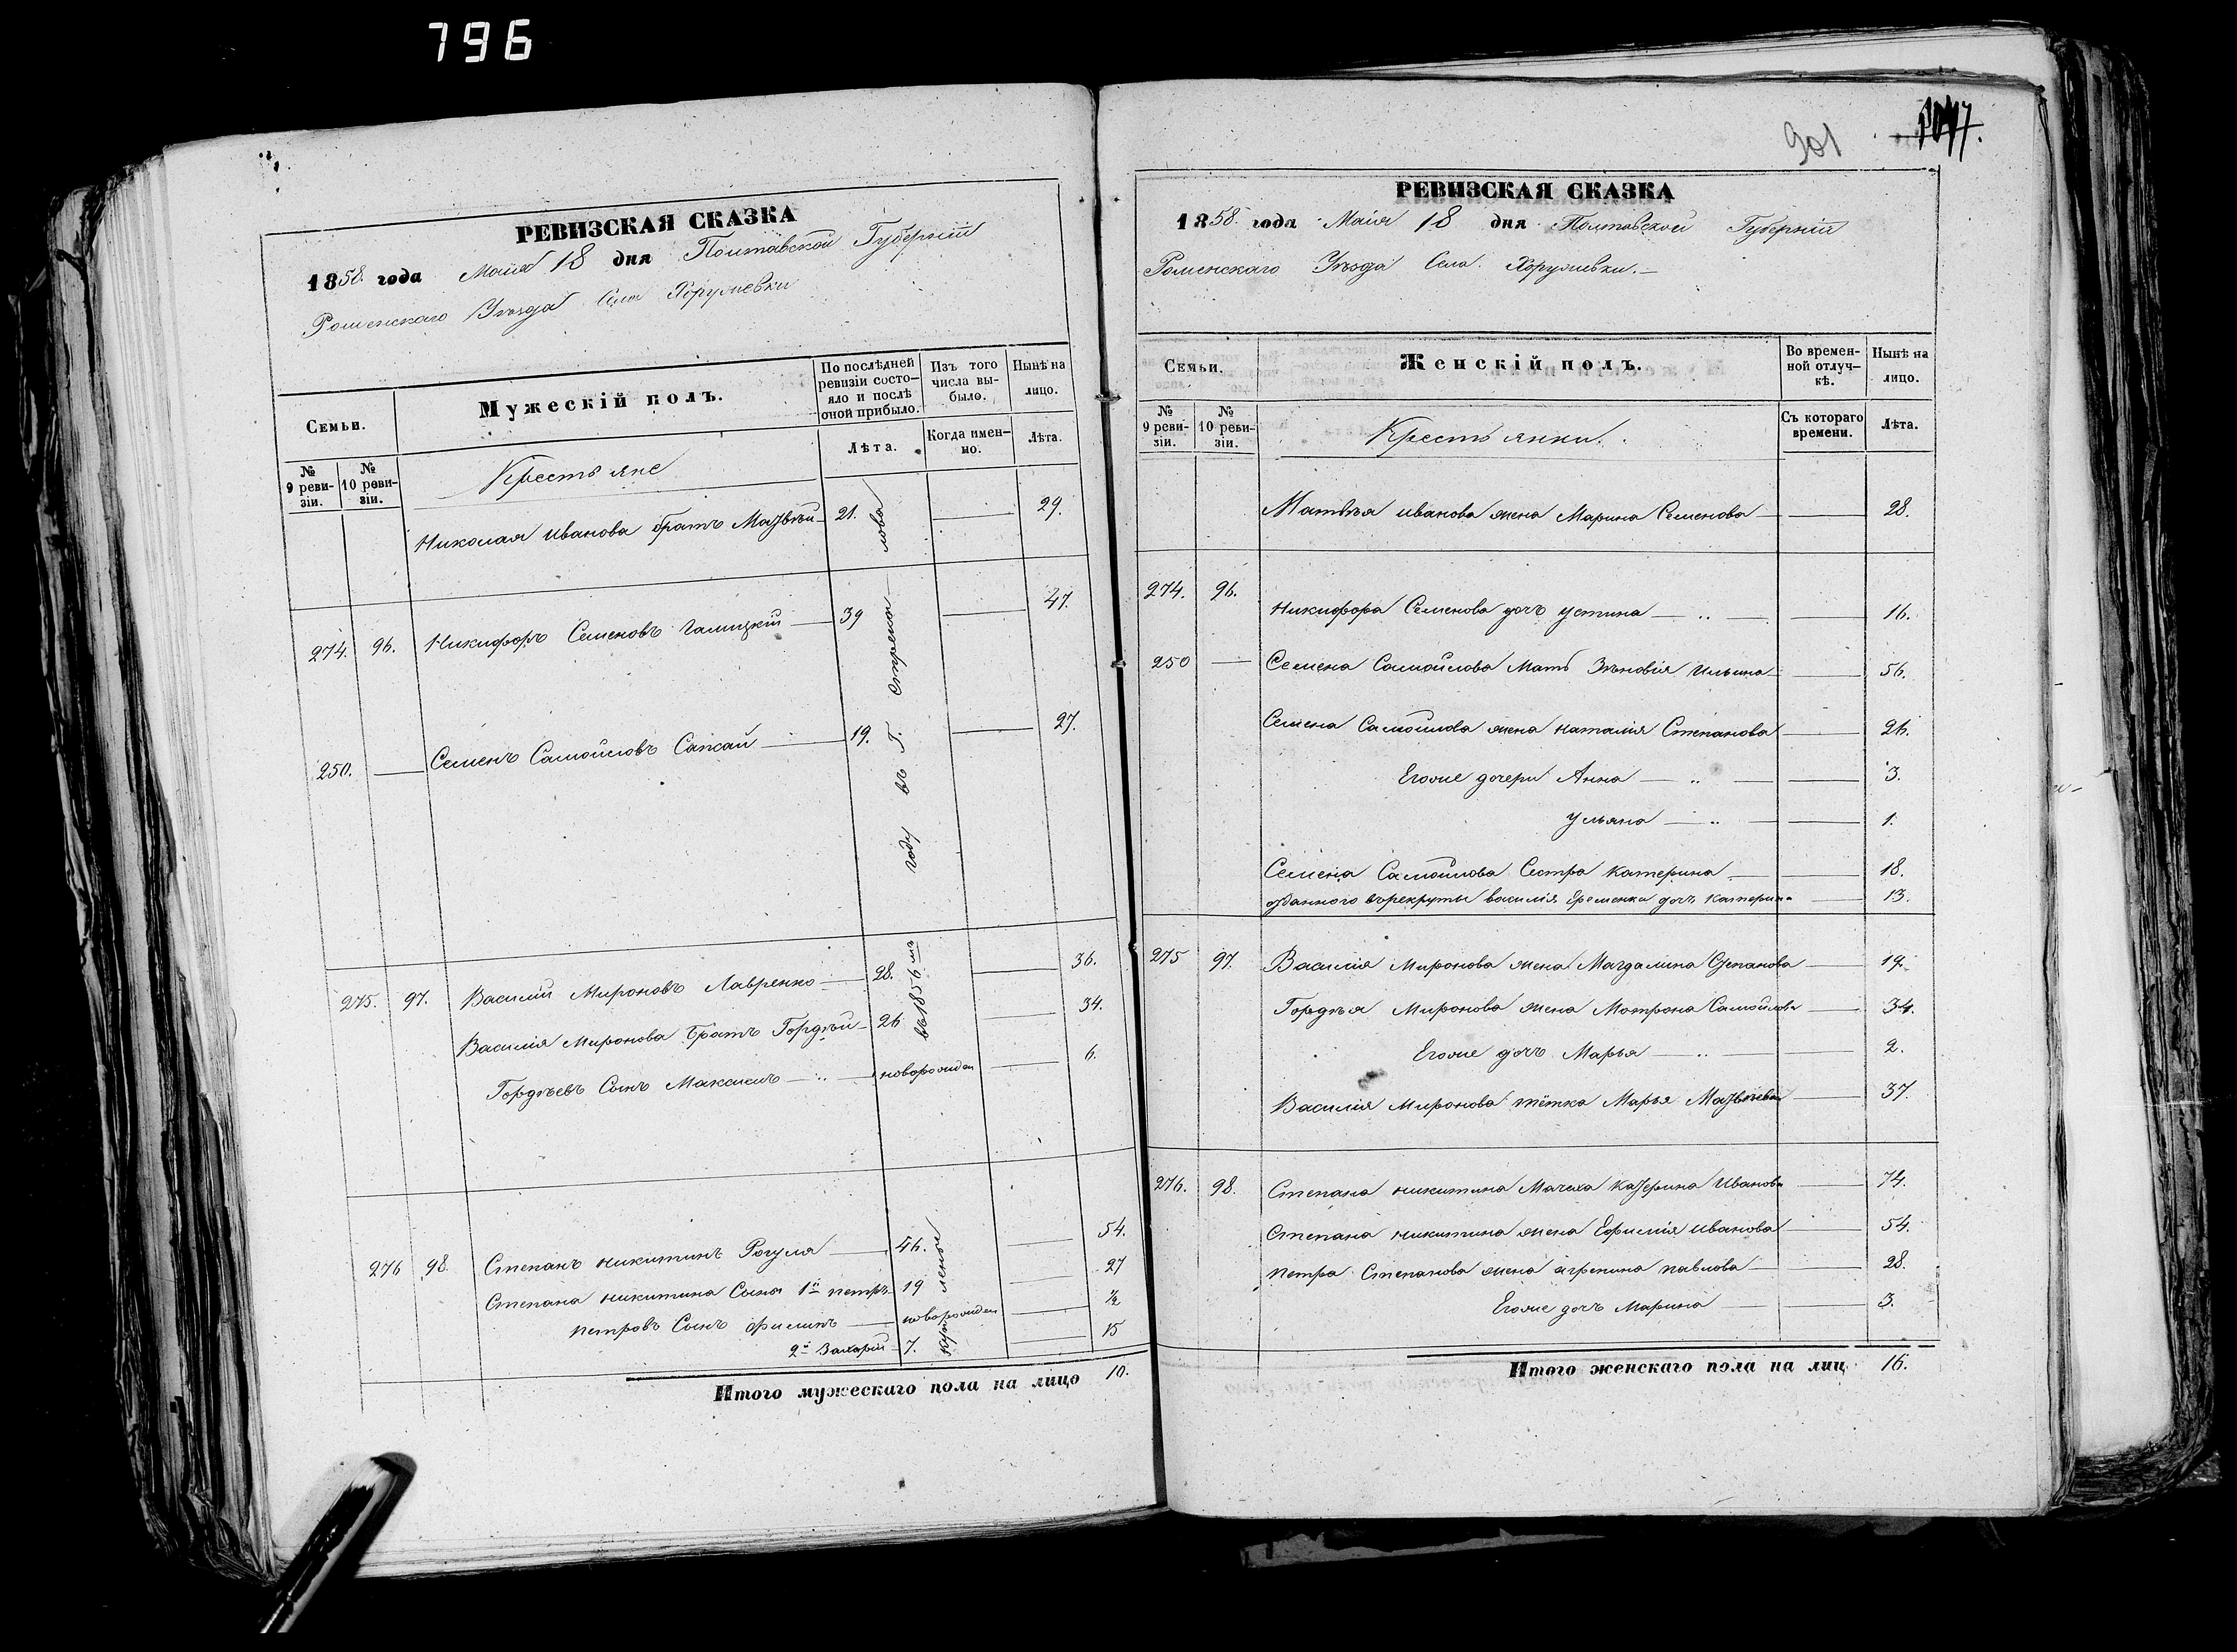 796
РЕВИЗСКАЯ СКАЗКА
1858. года Маія 18 дня Полтавской Губерніи
Роменскаго Уѣзда Села Хоружевки
Семьи.
Мужескій полъ.
По послѣдней ревизіи состояло и послѣ оной прибыло.
Изъ того числа выбыло.
Нынѣ на лицо.
№ 9 ревизіи.
№ 10 ревизіи.
Крестьяне
Лѣта.
Когда именно.
Лѣта.
Николая Иванова братъ Матвѣй 21. 29.
274. 96. Никифоръ Семеновъ Галицкій 39 47.
250. Семенъ Самойловъ Сапсай 19. 27.
275. 97. Василій Мироновъ Лавренко 28. 36.
Василія Миронова братъ Гордѣй 26 34.
Гордѣевъ Сынъ Максимъ новорожден 6.
276 98. Степанъ Никитинъ Рогуля 46. 54.
Степана Никитина Сына 1й петръ 19 27
петровъ Сынъ Филипъ новорожден ½
2й Захарій 7. 15
купленные въ 1856мъ году въ Г. Стремоухова
Итого мужескаго пола на лицо 10.
901
РЕВИЗСКАЯ СКАЗКА
1858. года Маія 18 дня Полтавской Губерніи
Роменскаго Уѣзда Села Хоружевки.
Семьи.
Женскій полъ.
Во временной отлучкѣ.
Нынѣ на лицо.
№ 9 ревизіи.
№ 10 ревизіи.
Крестьянки.
Съ котораго времени.
Лѣта.
Матвѣя иванова жена Марина Семенова 28.
274. 96. Никифора Семенова дочь устина 16.
250 Семена Самойлова Мать Зѣновія Ильина 56.
Семена Самойлова жена наталія Степанова 26.
Егоже дочери Анна 3.
Ульяна 1.
Семена Самойлова Сестра Катерина 18.
отданного врекруты василія Еременка дочь Катерина 13.
275 97. Василія Миронова жена Магдалина Степанова 19.
Гордѣя Миронова жена Мотрона Самойлова 34.
Егоже дочь Марья 2.
Василія Миронова тётка Марья Матвѣева 37.
276. 98. Степана никитина Мачеха Катерина Иванова 74.
Степана никитина жена Ефимія Иванова 54.
петра Степанова жена агрепина павлова 28.
Егоже дочь Марина 3.
Итого женскаго пола на лиц 16.